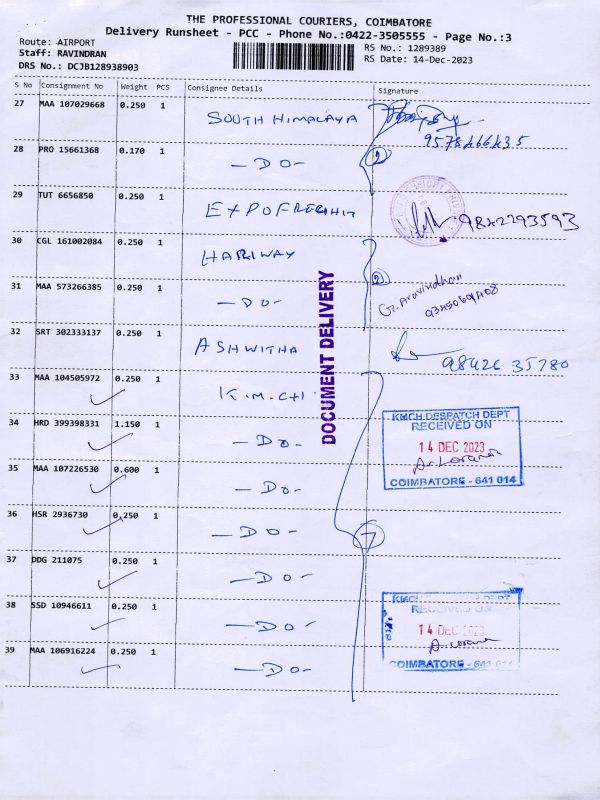 THE PROFESSIONAL COURIERS, COIMBATORE
Delivery Runsheet - PCC - Phone No.:0422-3505555 - Page No.:3
Route: AIRPORT
Staff: RAVINDRAN
DRS No.: DCJB128938903
RS No.: 1289389
RS Date: 14-Dec-2023
S No Consignment No Weight PCS Consignee Details Signature
27 MAA 107029668 0.250 1 SOUTH HIMALAYA
28 PRO 15661368 0.170 1 — DO — 2
29 TUT 6656850 0.250 1 EXPOFREIGHT 9842293593
30 CGL 161002084 0.250 1 HARIWAY 2
31 MAA 573266385 0.250 1 — DO — G. Aravindhan
32 SRT 302333137 0.250 1 ASHWITHA 98426 35780
33 MAA 104505972 0.250 1 K.M.CH
34 HRD 399398331 1.150 1 — DO —
35 MAA 107226530 0.600 1 — DO —
36 HSR 2936730 0.250 1 — DO — 7
37 DDG 211075 0.250 1 — DO —
38 SSD 10946611 0.250 1 — DO —
39 MAA 106916224 0.250 1 — DO —
DOCUMENT DELIVERY
KMCH DESPATCH DEPT
RECEIVED ON
14 DEC 2023
COIMBATORE - 641 014
KMCH DESPATCH DEPT
RECEIVED ON
14 DEC 2023
COIMBATORE - 641 014